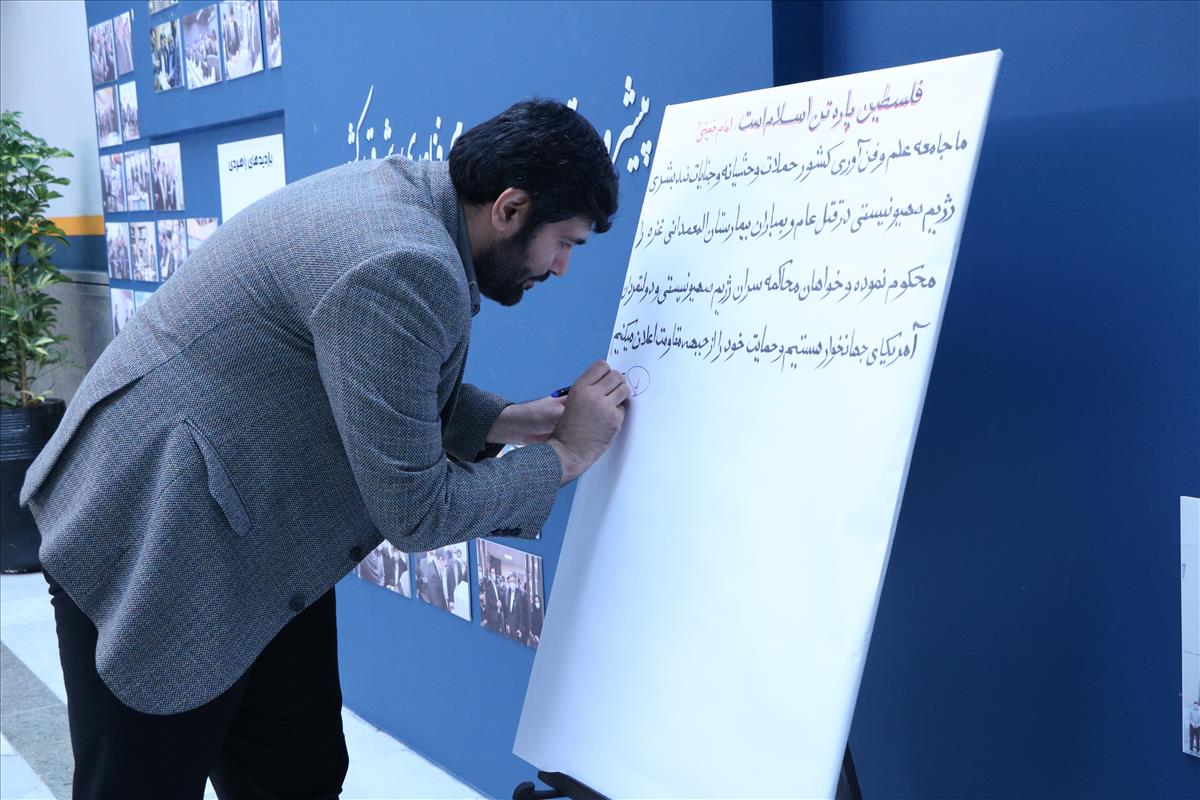 فلسطین پاره تن اسلام است امام خمینی
ما جامعه علم و فن آوری کشور حملات وحشیانه و جنایات ضد بشری
رژیم صهیونیستی در قتل عام و بمباران بیمارستان المعمدانی غزه را
محکوم نموده و خواهان محاکمه سران رژیم صهیونیستی و دولتمردان
آمریکای جهانخوار هستیم و حمایت خود را از جبهه مقاومت اعلان میکنیم
بازدیدهای راهبردی